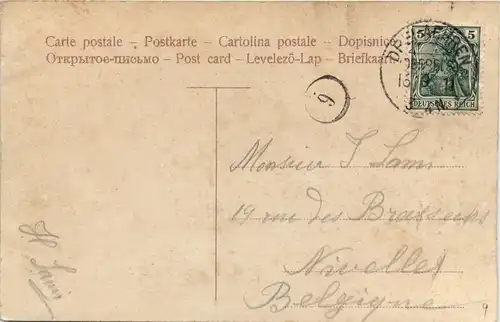 Carte postale – Postkarte – Cartolina postale – Dopisnic
Открытое-письмо – Post card – Levelező-Lap – Briefkaar
5 5
DEUTSCHES REICH
6
Monsieur J Lami
19 rue des Brasseurs
Nivelles
Belgique
H. Lami
9